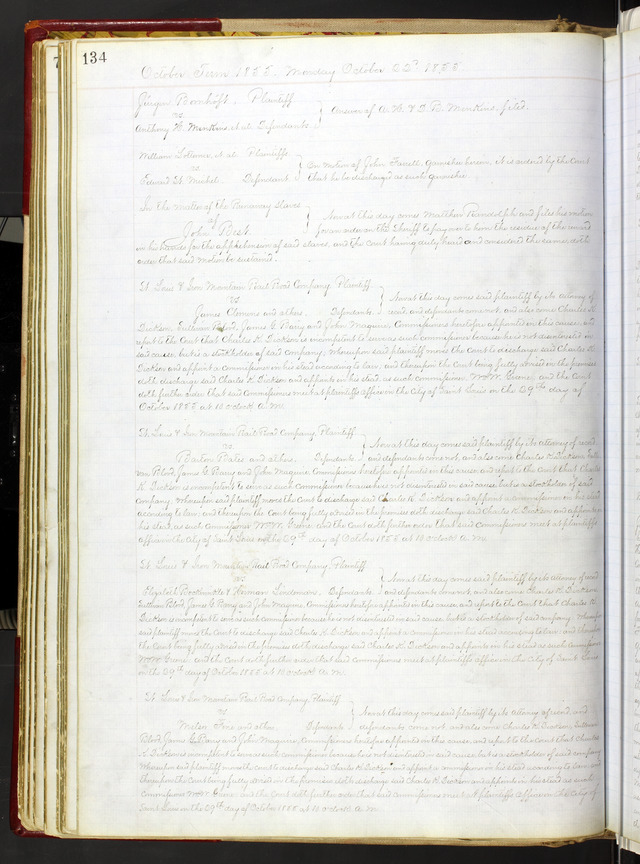 134
October Term 1855. Monday October 22d 1855
Jürgen Bornhöft. Plaintiff
vs
Anthony W. Menkens, et al. Defendants } Answer of A. W. & D. B. Menkins filed.
William et al. Plaintiffs
vs } On motion of John Farrell, Garnishee herein, it is ordered by the Court
Edward St. Michel. Defendant that he be discharged as such garnishee.
In the matter of the Runaway Slaves
of } Now at this day comes Matthew Randolph and files his motion
John Best for an order on the Sheriff to pay over to him the residue of the amount
in his hands for the apprehension of said slaves, and the Court having duly heard and considered the same doth
order that said motion be sustained.
St. Louis & Iron Mountain Rail Road Company, Plaintiff
vs } Now at this day comes said plaintiff by its attorney of
James Clemens and others. Defendants record and defendants come not, and also come Charles K.
Dickson, Sullivan Blood, James G. Barry and John Maguire, Commissioners heretofore appointed in this cause, and
report to the Court that Charles K. Dickson is incompetent to serve as such commissioner because he is not disinterested in
said cause, but is a stockholder of said company; whereupon said plaintiff moves the Court to discharge said Charles K.
Dickson and appoint a commissioner in his stead according to law, and thereupon the Court being fully advised in the premises
doth discharge said Charles K. Dickson and appoints in his stead, as such commissioner Wm. W. Greene, and the Court
doth further order that said commissioners meet at plaintiffs office in the City of Saint Louis on the 29th day of
October 1855 at 10 o'clock A.M.
St. Louis & Iron Mountain Rail Road Company, Plaintiff
vs } Now at this day comes said plaintiff by its attorney of record
Barton Bates and others. Defendants and defendants come not, and also come Charles K. Dickson, Sulli-
van Blood, James G. Barry and John Maguire Commissioners heretofore appointed in this cause and report to the Court that Charles
K. Dickson is incompetent to serve as such commissioner because he is not disinterested in said cause, but is a stockholder of said
company. Whereupon said plaintiff moves the Court to discharge said Charles K. Dickson and appoint a commissioner in his stead
according to law, and thereupon the Court being fully advised in the premises doth discharge said Charles K. Dickson, and appoints in
his stead, as such Commissioner Wm. W. Greene and the Court doth further order that said Commissioners meet at plaintiffs
office in the City of Saint Louis on the 29th day of October 1855 at 10 o'clock A.M.
St. Louis & Iron Mountain Rail Road Company, Plaintiff
vs } Now at this day comes said plaintiff by its attorney of record
Elizabeth Brockmiller & Herman Lindeman. Defendants and defendants come not, and also come Charles K. Dickson
Sullivan Blood, James G. Barry and John Maguire, Commissioners heretofore appointed in this cause, and report to the Court that Charles K.
Dickson is incompetent to serve as such commissioner because he is not disinterested in said cause, but is a stockholder of said company. Whereupon
said plaintiff moves the Court to discharge said Charles K. Dickson and appoint a commissioner in his stead according to law, and thereupon
the Court being fully advised in the premises doth discharge said Charles K. Dickson and appoints in his stead as such Commissioner
Wm. W. Greene and the Court doth further order that said commissioners meet at plaintiffs office in the City of Saint Louis
on the 29th day of October 1855 at 10 o'clock A.M.
St. Louis & Iron Mountain Rail Road Company, Plaintiff
vs } Now at this day comes said plaintiff by its attorney of record, and
and others. Defendants defendants come not, and also come Charles K. Dickson, Sullivan
Blood, James G. Barry and John Maguire, Commissioners heretofore appointed in this cause, and report to the Court that Charles
K. Dickson is incompetent to serve as such commissioner because he is not disinterested in said cause, but is a stockholder of said company
Whereupon said plaintiff moves the Court to discharge said Charles K. Dickson and appoint a commissioner in his stead according to law and
thereupon the Court being fully advised in the premises doth discharge said Charles K. Dickson and appoints in his stead as such
commissioner Wm. W. Greene and the Court doth further order that said commissioners meet at plaintiffs office in the City of
Saint Louis on the 29th day of October 1855 at 10 o'clock A.M.